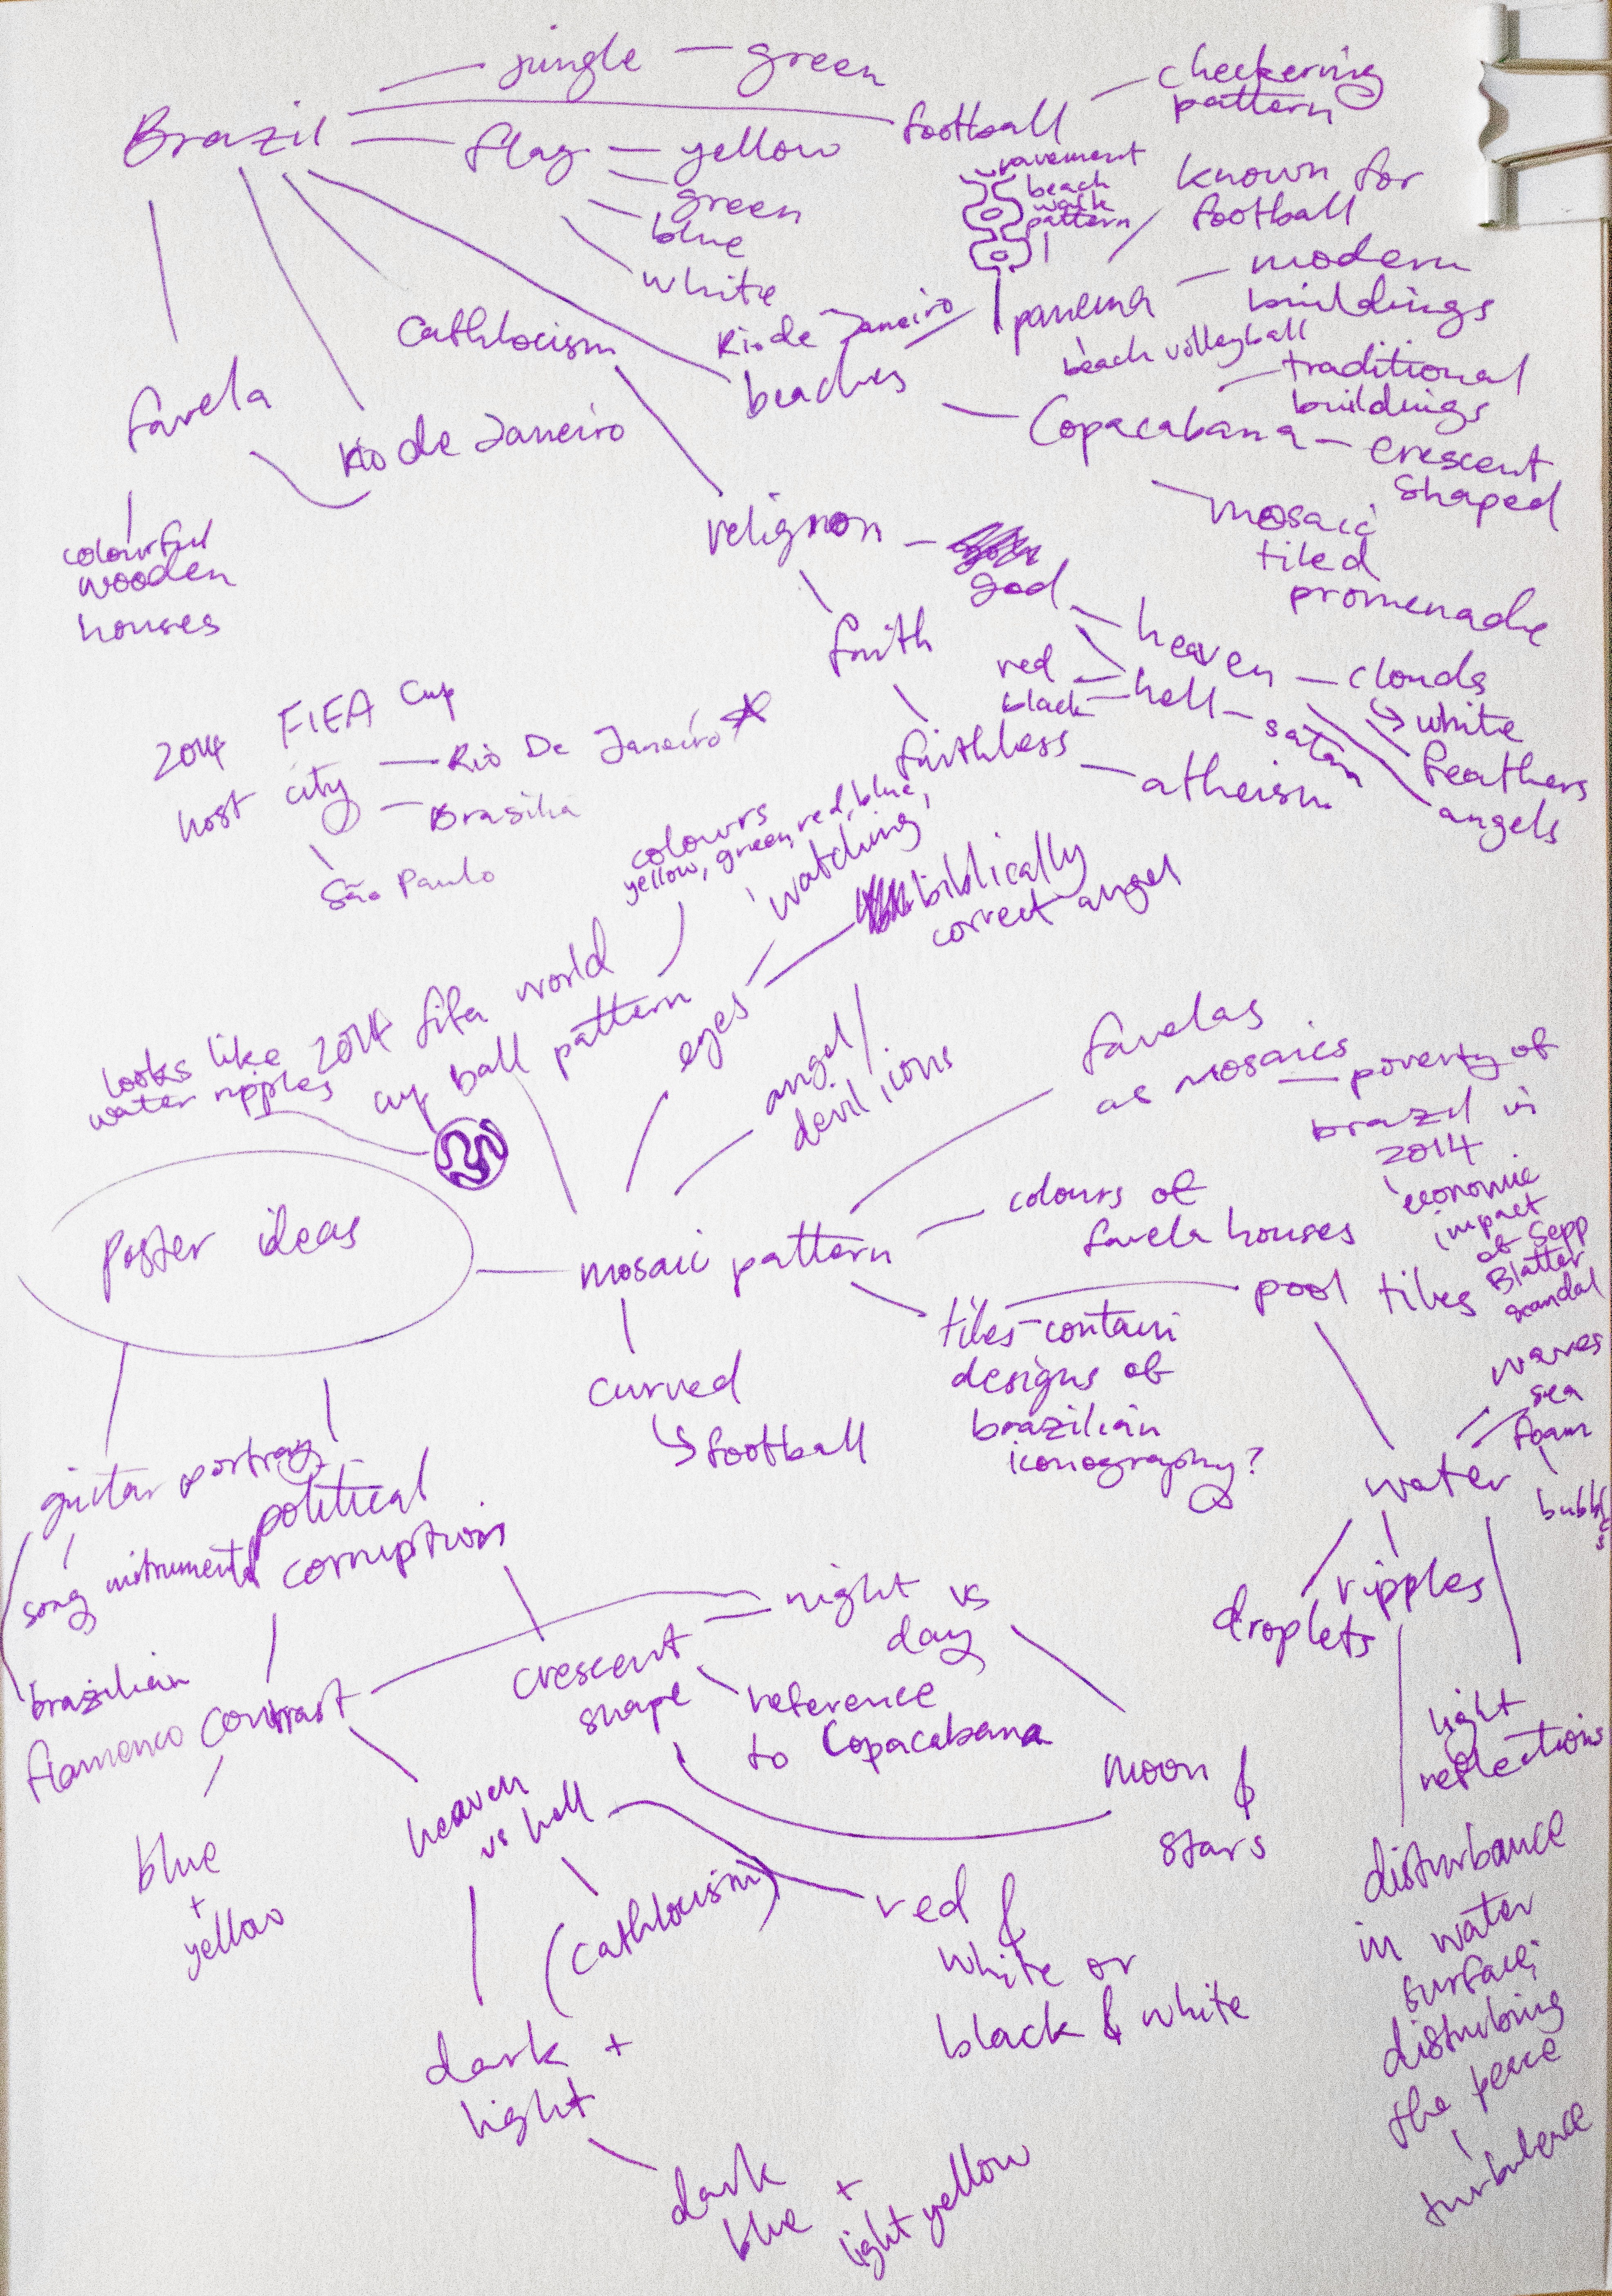 jungle — green
Brazil
flag — yellow
green
blue
white
football
checkering
pattern
pavement
beach
walk
pattern
known for
football
Rio de Janeiro
Ipanema
modern
buildings
beach volleyball
beaches
traditional
buildings
Copacabana — crescent
shaped
mosaic
tiled
promenade
Cathlocism
favela
Rio de Janeiro
colourful
wooden
houses
religion
god
faith
heaven — clouds
white
feathers
angels
red
black
hell — satan
faithless
atheism
2014 FIFA Cup
host city — Rio De Janeiro
Brasilia
São Paulo
colours
yellow, green, red, blue,
watching
biblically
correct angel
looks like
water ripples
2014 fifa world
cup ball pattern
eyes
angel/
devil icons
favelas
as mosaics — poverty of
brazil in
2014
economic
impact
of Sepp
Blatter
scandal
Poster ideas
mosaic pattern
colours of
favela houses
curved
football
tiles contain
designs of
brazilian
iconography?
pool tiles
waves
sea
foam
bubbles
water
droplets
ripples
light
reflections
disturbance
in water
surface;
disturbing
the peace
turbulence
guitar
song
instrument
brazilian
flamenco
portray
political
corruption
contrast
blue
+
yellow
crescent
shape
night vs
day
reference
to Copacabana
moon &
stars
heaven
vs hell
(Cathlocism)
red &
white or
black & white
dark +
light
dark
blue +
light yellow